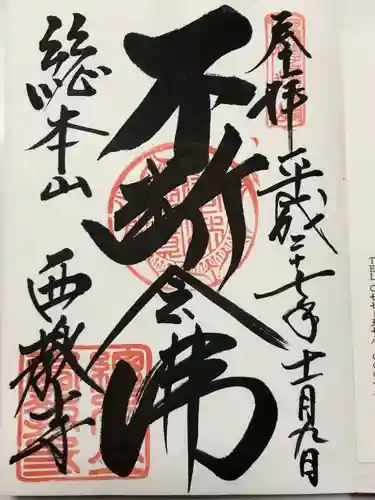 奉拝
平成二十七年十一月九日
不断念佛
総本山
西教寺